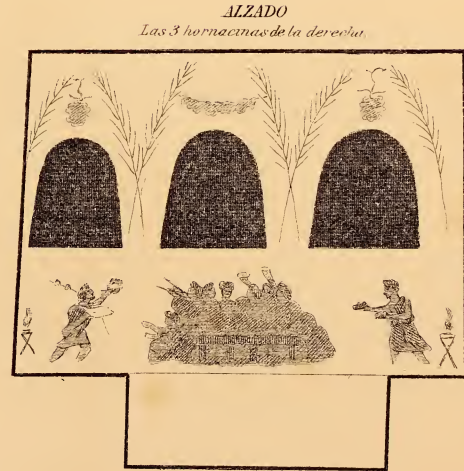 ALZADO
Las 3 hornacinas de la derecha.